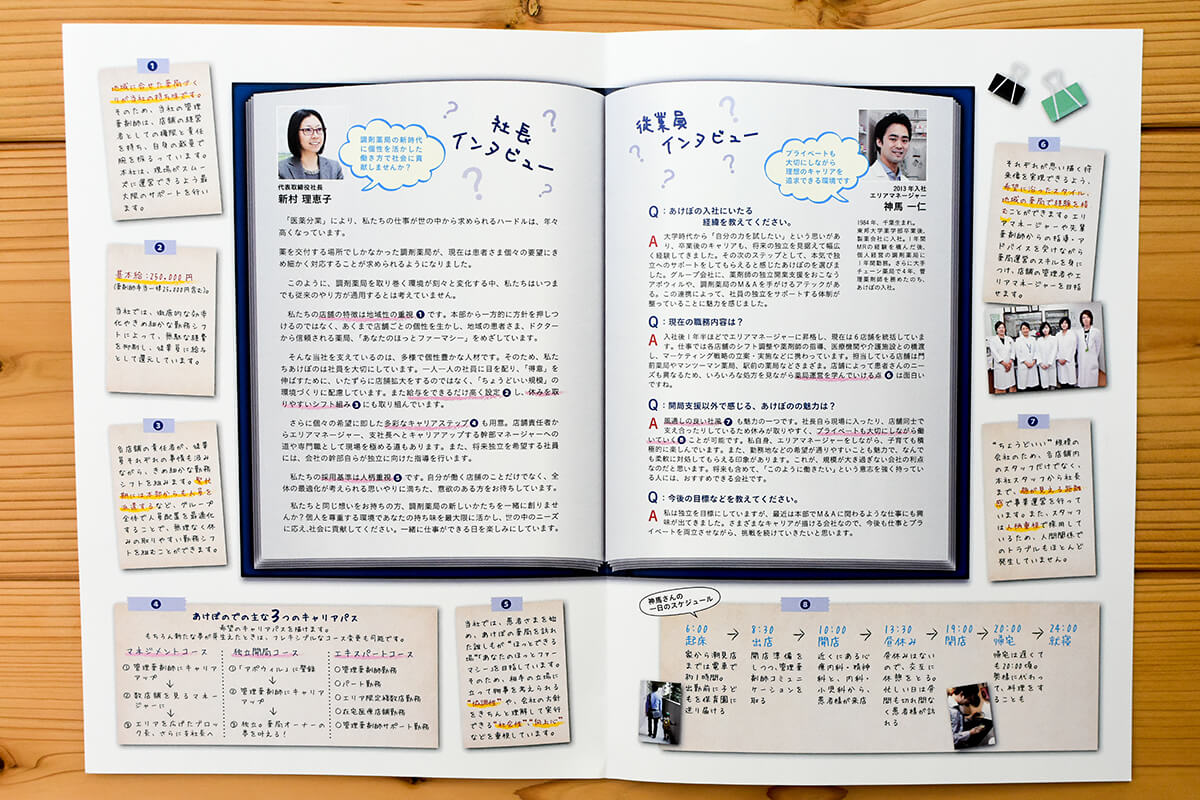 1
地域に合せた薬局づく
りが当社の持ち味です。
そのため、当社の管理
薬剤師は、店舗の経営
者としての権限と責任
を持ち、自身の裁量で
腕を振るっています。
本社は、現場がスムー
ズに運営できるよう最
大限のサポートを行い
ます。
2
基本給:250,000円
(薬剤師手当一律25,000円含む)。
当社では、徹底的な効率
化やきめ細かな勤務シフ
トによって、無駄な経費
を抑制し、従業員に給与
として還元しています。
3
各店舗の責任者が、従業
員それぞれの事情も汲み
ながら、きめ細かな勤務
シフトを組みます。繁忙
期には本部からも人員を
派遣するなど、グループ
全体で人員配置を最適化
することで、無理なく休
みの取りやすい勤務シフ
トを組むことができます。
社長
インタビュー
調剤薬局の新時代
に個性を活かした
働き方で社会に貢
献しませんか?
代表取締役社長
新村 理恵子
「医薬分業」により、私たちの仕事が世の中から求められるハードルは、年々
高くなっています。
薬を交付する場所でしかなかった調剤薬局が、現在は患者さま個々の要望にき
め細かく対応することが求められるようになりました。
このように、調剤薬局を取り巻く環境が刻々と変化する中、私たちはいつま
でも従来のやり方が通用するとは考えていません。
私たちの店舗の特徴は地域性の重視1です。本部から一方的に方針を押しつ
けるのではなく、あくまで店舗ごとの個性を生かし、地域の患者さま、ドクター
から信頼される薬局、「あなたのほっとファーマシー」をめざしています。
そんな当社を支えているのは、多様で個性豊かな人材です。そのため、私た
ちあけぼのは社員を大切にしています。一人一人の社員に目を配り、「得意」を
伸ばすために、いたずらに店舗拡大をするのではなく、「ちょうどいい規模」の
環境づくりに配慮しています。また給与をできるだけ高く設定2し、休みを取
りやすいシフト組み3にも取り組んでいます。
さらに個々の希望に即した多彩なキャリアステップ4も用意。店舗責任者か
らエリアマネージャー、支社長へとキャリアアップする幹部マネージャーへの
道や専門職として現場を極める道もあります。また、将来独立を希望する社員
には、会社の幹部自らが独立に向けた指導を行います。
私たちの採用基準は人柄重視5です。自分が働く店舗のことだけでなく、全
体の最適化が考えられる思いやりに満ちた、意欲のある方をお待ちしています。
私たちと同じ想いをお持ちの方、調剤薬局の新しいかたちを一緒に創りませ
んか?個人を尊重する環境であなたの持ち味を最大限に活かし、世の中のニーズ
に応え、社会に貢献してください。一緒に仕事ができる日を楽しみにしています。
従業員
インタビュー
プライベートも
大切にしながら
理想のキャリアを
追求できる環境です
2013年入社
エリアマネージャー
神馬 一仁
1984年、千葉生まれ。
東邦大学薬学部卒業後、
製薬会社に入社。1年間
MRの経験を積んだ後、
個人経営の調剤薬局に
1年間勤務。さらに大手
チェーン薬局で4年、管
理薬剤師を務めたのち、
あけぼの入社。
Q:あけぼの入社にいたる
経緯を教えてください。
A 大学時代から「自分の力を試したい」という思いがあ
り、卒業後のキャリアも、将来の独立を見据えて幅広
く経験してきました。その次のステップとして、本気で独
立へのサポートをしてもらえると感じたあけぼのを選びま
した。グループ会社に、薬剤師の独立開業支援をおこなう
アポウィルや、調剤薬局のM&Aを手がけるアテックがあ
る。この連携によって、社員の独立をサポートする体制が
整っていることに魅力を感じました。
Q:現在の職務内容は?
A 入社後1年半ほどでエリアマネージャーに昇格し、現在は6店舗を統括していま
す。仕事では各店舗のシフト調整や薬剤師の指導、医療機関や介護施設との橋渡
し、マーケティング戦略の立案・実施などに携わっています。担当している店舗は門
前薬局やマンツーマン薬局、駅前の薬局などさまざま。店舗によって患者さんのニー
ズも異なるため、いろいろな処方を見ながら薬局運営を学んでいける点6は面白い
ですね。
Q:開局支援以外で感じる、あけぼのの魅力は?
A 風通しの良い社風7も魅力の一つです。社長自ら現場に入ったり、店舗同士で
支え合ったりしているため休みが取りやすく、プライベートも大切にしながら働
いていく8ことが可能です。私自身、エリアマネージャーをしながら、子育ても積
極的に楽しんでいます。また、勤務地などの希望が通りやすいことも魅力で、なんで
も柔軟に対処してもらえる印象があります。これが、規模が大き過ぎない会社の利点
なのだと思います。将来も含めて、「このように働きたい」という意志を強く持ってい
る人には、おすすめできる会社です。
Q:今後の目標などを教えてください。
A 私は独立を目標にしていますが、最近は本部でM&Aに関わるような仕事にも興
味が出てきました。さまざまなキャリアが描ける会社なので、今後も仕事とプラ
イベートを両立させながら、挑戦を続けていきたいと思います。
6
それぞれが思い描く将
来像を実現できるよう、
希望に沿ったスタイル、
地域の薬局で経験を積
むことができます。エリ
アマネージャーや先輩
薬剤師からの指導・ア
ドバイスを受けながら
薬局運営のスキルを身に
つけ、店舗の管理者やエ
リアマネージャーを目指
せます。
7
"ちょうどいい"規模の
会社のため、各店舗内
のスタッフだけでなく、
本社スタッフから社長
まで、顔が見える距離
感で事業運営を行って
います。また、スタッフ
は人柄重視で採用して
いるため、人間関係で
のトラブルもほとんど
発生していません。
4
あけぼのでの主な3つのキャリアパス
希望のキャリアパスを描けます。
もちろん新たな夢が芽生えたときは、フレキシブルなコース変更も可能です。
マネジメントコース
①管理薬剤師にキャリア
アップ
↓
②数店舗を見るマネー
ジャーに
↓
③エリアを広げたブロッ
ク長、さらに支社長の
独立開局コース
①「アポウィル」に登録
↓
②管理薬剤師にキャリア
アップ
↓
③独立。薬局オーナーの
夢を叶える!
エキスパートコース
○管理薬剤師勤務
○パート勤務
○エリア限定複数店勤務
○在宅医療店舗勤務
○管理薬剤師サポート勤務
5
当社では、患者さまを始
め、あけぼの薬局を訪れ
た誰しもが"ほっとできる
場"「あなたのほっとファー
マシー」を目指しています。
そのため、相手の立場に
立って物事を考えられる
"協調性"や、会社の方針
をきちんと理解して実行
できる"社会性""向上心"
などを重視しています。
神馬さんの
一日のスケジュール
8
6:00
起床
家から潮見店
までは電車で
約1時間。
出勤前に子ど
もを保育園に
送り届ける
→
8:30
出店
開店準備を
しつつ、管理薬
剤師コミュニ
ケーションを
取る
→
10:00
開店
近くにある心
療内科・精神
科と、内科・
小児科から、
患者様が来店
→
13:30
昼休み
昼休みはない
ので、交互に
休憩をとる。
忙しい日は昼
間も切れ間な
く患者様が訪
れる
→
19:00
閉店
→
20:00
帰宅
帰宅は遅くて
も20:00頃。
奥様に代わっ
て、料理をす
ることも
→
24:00
就寝